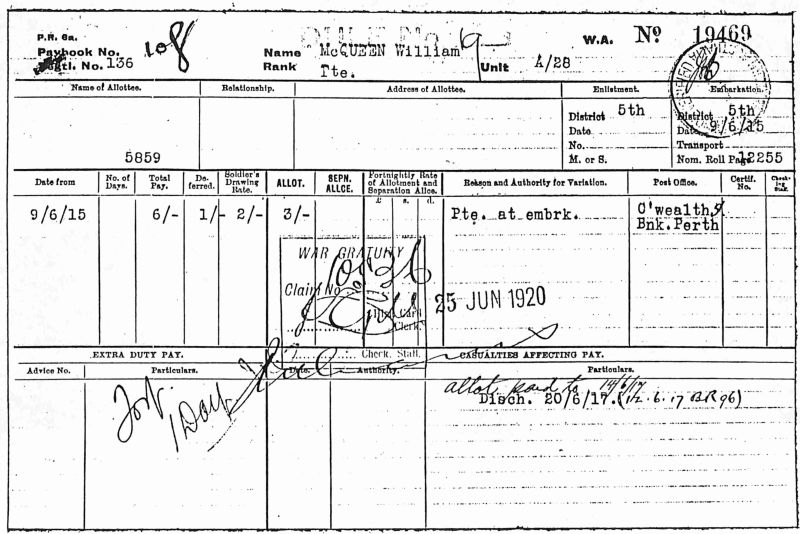 P.R. 6a.
Paybook No.
No. 136
108
Name McQUEEN William
Rank Pte.
Unit A/28
W.A. No 19469
Name of Allottee.
Relationship.
Address of Allottee.
Enlistment.
Embarkation.
5859
District 5th
Date
No.
M. or S.
District 5th
Date 9/6/15
Transport
Nom. Roll Page 12255
Date from
No. of Days.
Total Pay.
De-ferred.
Soldier's Drawing Rate.
ALLOT.
SEPN. ALLCE.
Fortnightly Rate of Allotment and Separation Allce.
£ s. d.
Reason and Authority for Variation.
Post Office.
Certif. No.
Check-ing Stall.
9/6/15 6/- 1/- 2/- 3/- Pte. at embrk. C'wealth
Bnk. Perth
WAR GRATUITY
Claim No.
Card
Clerk.
Check. Stall.
25 JUN 1920
EXTRA DUTY PAY.
CASUALTIES AFFECTING PAY.
Advice No.
Particulars.
Date.
Authority.
Particulars.
Forf.
1 Day
allot. paid to 14/6/17
Disch. 20/6/17. (12.6.17 BR 96)